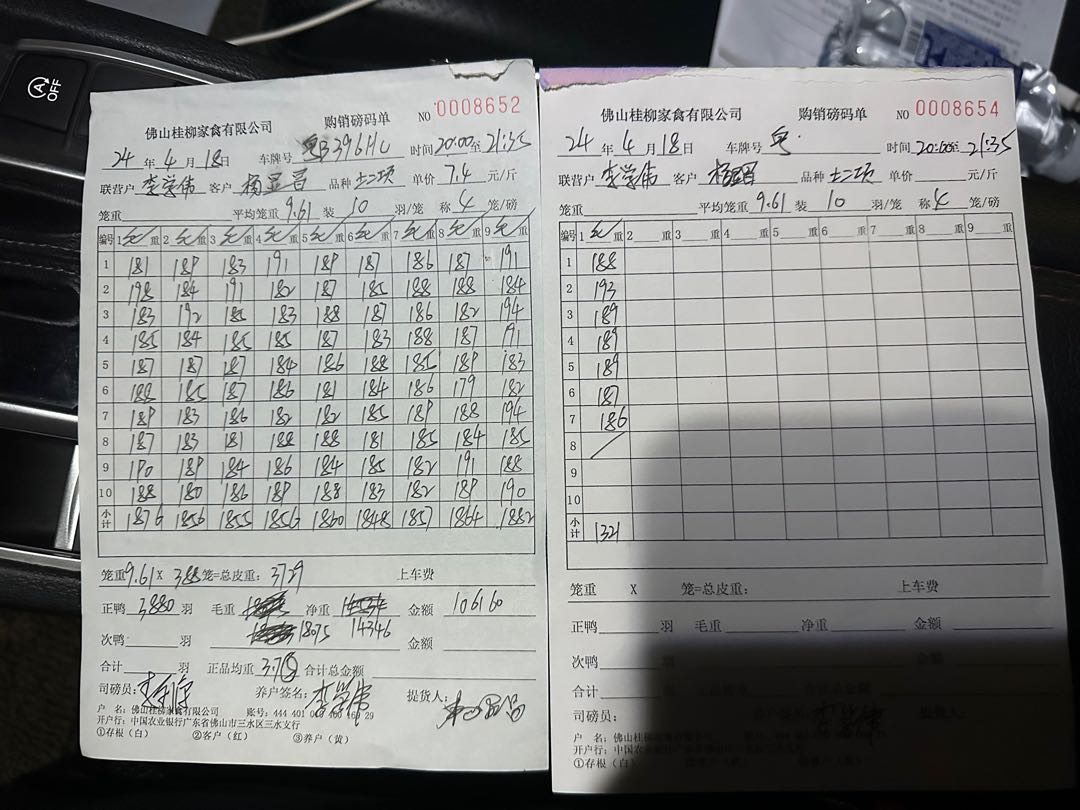 OFF
佛山桂柳家禽有限公司 购销磅码单 NO 0008652
24 年 4 月 18 日 车牌号 粤B396HU 时间 20:00 至 21:35
联营户 李学伟 客户 杨显昌 品种 土二项 单价 7.4 元/斤
笼重 平均笼重 9.61 装 10 羽/笼 称 4 笼/磅
编号 1 毛重 2 毛重 3 毛重 4 毛重 5 毛重 6 毛重 7 毛重 8 毛重 9 毛重
1 181 189 183 191 189 187 186 187 191
2 198 184 191 182 187 185 188 188 184
3 183 192 185 183 188 187 186 182 194
4 185 184 185 185 187 183 188 187 191
5 187 187 187 184 186 188 185 189 183
6 188 185 187 186 181 184 186 179 182
7 189 183 186 182 182 185 189 188 194
8 187 183 181 188 188 181 185 184 185
9 190 189 184 186 184 185 182 191 188
10 188 180 186 189 188 183 182 189 190
小计 1876 1856 1855 1856 1860 1848 1857 1864 1882
笼重 9.61 X 388 笼=总皮重: 3729 上车费
正鸭 3880 羽 毛重 净重 金额 106160
18075 14346
次鸭 羽 金额
合计 羽 正品均重 3.70 合计总金额
司磅员: 养户签名: 李学伟 提货人:
户 名: 佛山桂柳家禽有限公司 账号: 444 401 040 400 169 29
开户行: 中国农业银行广东省佛山市三水区三水支行
①存根(白) ②客户(红) ③养户(黄)
佛山桂柳家禽有限公司 购销磅码单 NO 0008654
24 年 4 月 18 日 车牌号 粤 时间 20:00 至 21:35
联营户 李学伟 客户 杨显昌 品种 土二项 单价 元/斤
笼重 平均笼重 9.61 装 10 羽/笼 称 4 笼/磅
编号 1 毛重 2 重 3 重 4 重 5 重 6 重 7 重 8 重 9 重
1 188
2 193
3 189
4 189
5 189
6 187
7 186
8
9
10
小计 1321
笼重 X 笼=总皮重: 上车费
正鸭 羽 毛重 净重 金额
次鸭 羽 金额
合计 羽 正品均重 合计总金额
司磅员: 养户签名: 李学伟 提货人:
户 名: 佛山桂柳家禽有限公司
开户行: 中国农业银行广东省佛山市三水区三水支行
①存根(白) ②客户(红) ③养户(黄)